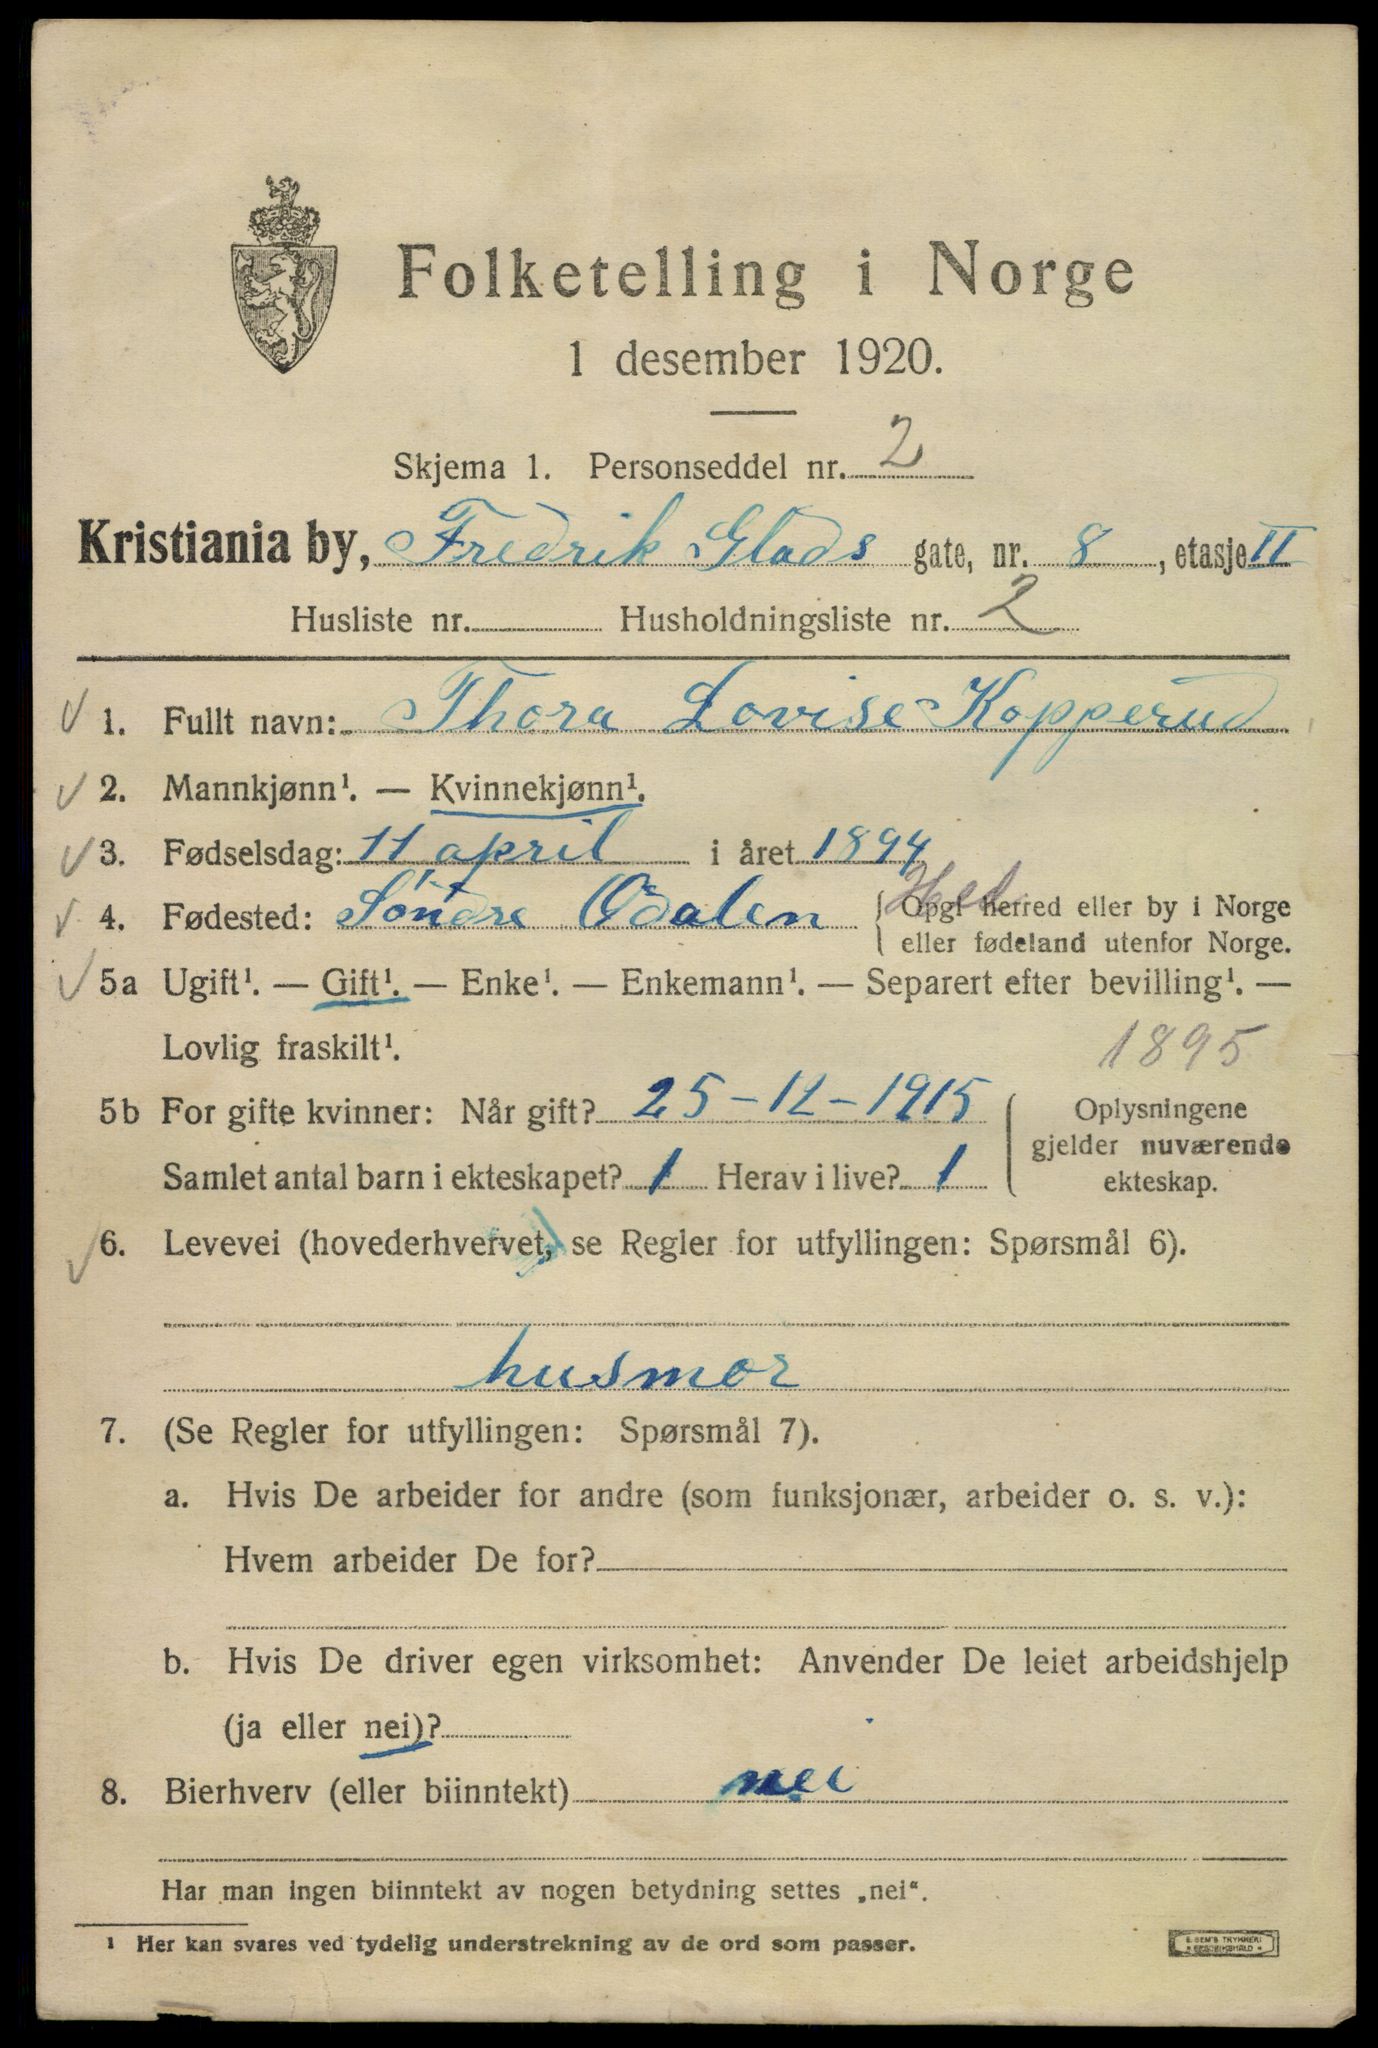 Folketelling i Norge
1 desember 1920.
Skjema 1. Personseddel nr. 2
Kristiania by, Fredrik Glads gate, nr. 8, etasje II
Husliste nr. Husholdningsliste nr. 2
1. Fullt navn: Thora Lovise Kopperud
2. Mannkjønn¹. — Kvinnekjønn¹.
3. Fødselsdag: 11 april i året 1894
4. Fødested: Söndre Odalen Hed
Opgi herred eller by i Norge
eller fødeland utenfor Norge.
5a Ugift¹. — Gift¹. — Enke¹. — Enkemann¹. — Separert efter bevilling¹. —
Lovlig fraskilt¹.
1895
5b For gifte kvinner: Når gift? 25-12-1915
Samlet antal barn i ekteskapet? 1 Herav i live? 1
Oplysningene
gjelder nuværende
ekteskap.
6. Levevei (hovederhvervet, se Regler for utfyllingen: Spørsmål 6).
husmor
7. (Se Regler for utfyllingen: Spørsmål 7).
a. Hvis De arbeider for andre (som funksjonær, arbeider o. s. v.):
Hvem arbeider De for?
b. Hvis De driver egen virksomhet: Anvender De leiet arbeidshjelp
(ja eller nei)?
8. Bierhverv (eller biinntekt) nei
Har man ingen biinntekt av nogen betydning settes „nei“.
¹ Her kan svares ved tydelig understrekning av de ord som passer.
E. SEM'S TRYKKERI
FREDRIKSHALD